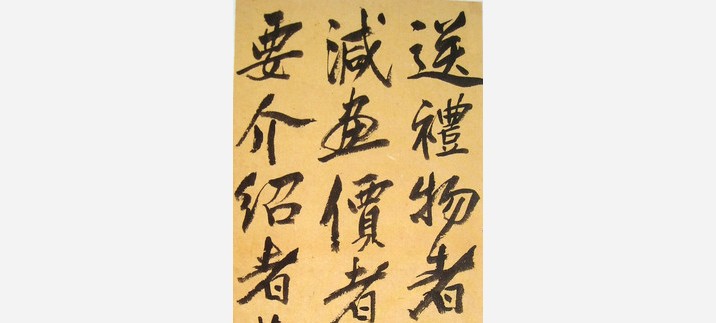 送禮物者
減画價者
要介紹者